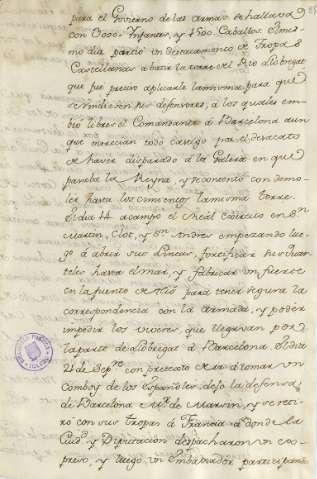 para el Govierno de las armas se hallava
con 9000 Infantes, y 4500 Caballos. El mes-
mo dia partió un destacamento de Tropas
Castellanas a batir la torre del Rio Llobregat
que fue preciso aplicarle la mina para que
se rindiesen sus defensores, a los quales em-
bió libres el Comandante á Barcelona aun
que merecian todo castigo por el desacato
de haver disparado á la Galera en que
passava la Reyna, y se contentó con demo-
ler hasta los cimientos la misma torre.
El dia 14 acampó el Real Exército en Sn.
Martin, Clot, y Sn. Andres empezando lue-
go á abrir sus Lineas, fortificar sus Quar-
teles hasta el mar, y fabricar un fuerte
en la fuente para tener segura la
correspondencia con la armada, y poder
impedir los viveres que llegavan por
la parte de Llobregat á Barcelona. El dia
21 de Sepre. con pretexto de ir á tomar un
Comboy de los españoles dejó la defensa
de Barcelona Mr. de Marsin, y se retiró
con sus tropas á Francia á donde la
Ciud. y Diputacion despacharon un ex-
preso, y luego un Embaxador para